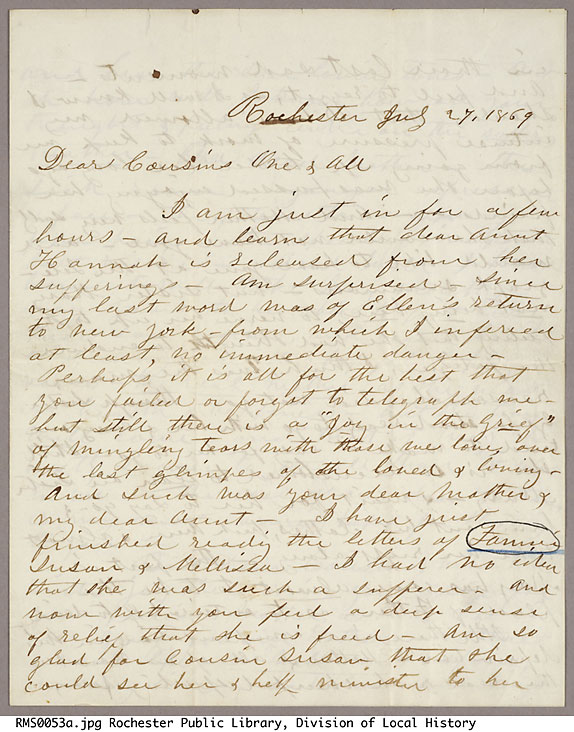 Rochester July 27, 1869
Dear Cousins One & All
I am just in for a few
hours - and learn that dear Aunt
Hannah is released from her
sufferings - Am surprised - since
my last word was of Ellen's return
to new york - from which I infered
at least, no immediate danger -
Perhaps, it is all for the best that
you failed or forgot to telegraph me -
but still there is a "joy in the grief"
of mingling tears with those we love over
the last glimpses of the loved & loving -
And such was your dear Mother &
my dear Aunt - I have just
finished reading the letters of Fannie
Susan & Mellissa - I had no idea
that she was such a sufferer - and
now with you feel a deep sense
of relief that she is freed - Am so
glad for Cousin Susan that she
could see her & help minister to her
RMS0053a.jpg Rochester Public Library, Division of Local History